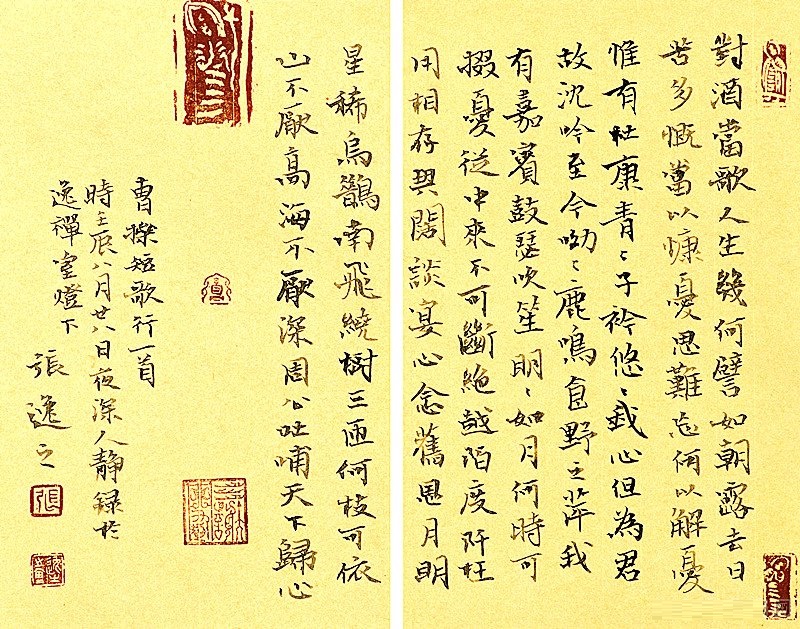 對酒當歌人生幾何譬如朝露去日
苦多慨當以慷憂思難忘何以解憂
惟有杜康青〻子衿悠〻我心但為君
故沈吟至今呦〻鹿鳴食野之苹我
有嘉賓鼓瑟吹笙明〻如月何時可
掇憂從中來不可斷絕越陌度阡枉
用相存契闊談宴心念舊恩月明
星稀烏鵲南飛繞樹三匝何枝可依
山不厭高海不厭深周公吐哺天下歸心
曹操短歌行一首
時壬辰八月廿八日夜深人靜錄於
逸禪室燈下
張逸之
張